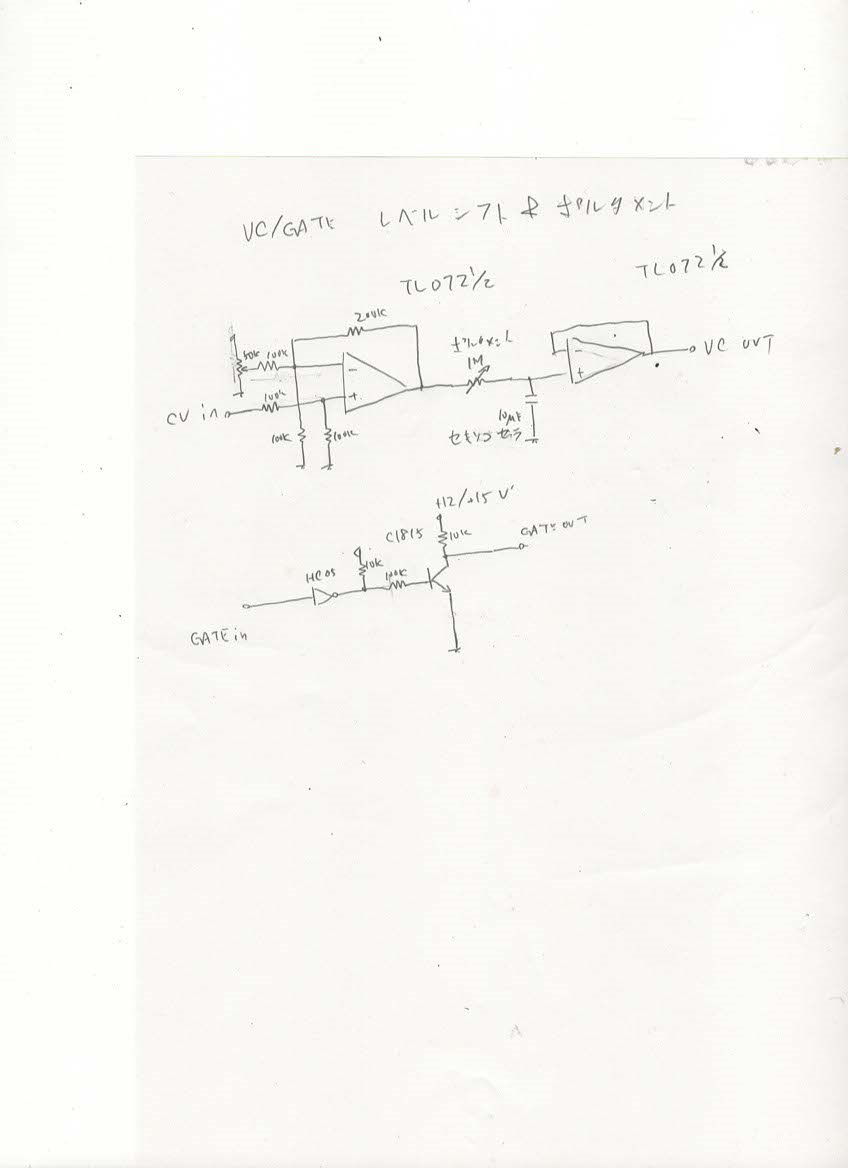 VC/GATE レベルシフト & ポルタメント
TL072 1/2
TL072 1/2
200K
50K 100K
ポルタメント
1M
VC OUT
100K
CV in
100K
100K
10μF
セキソウ セラ
+12/+15V
C1815
10K
GATE OUT
HC05
10K
100K
GATE in